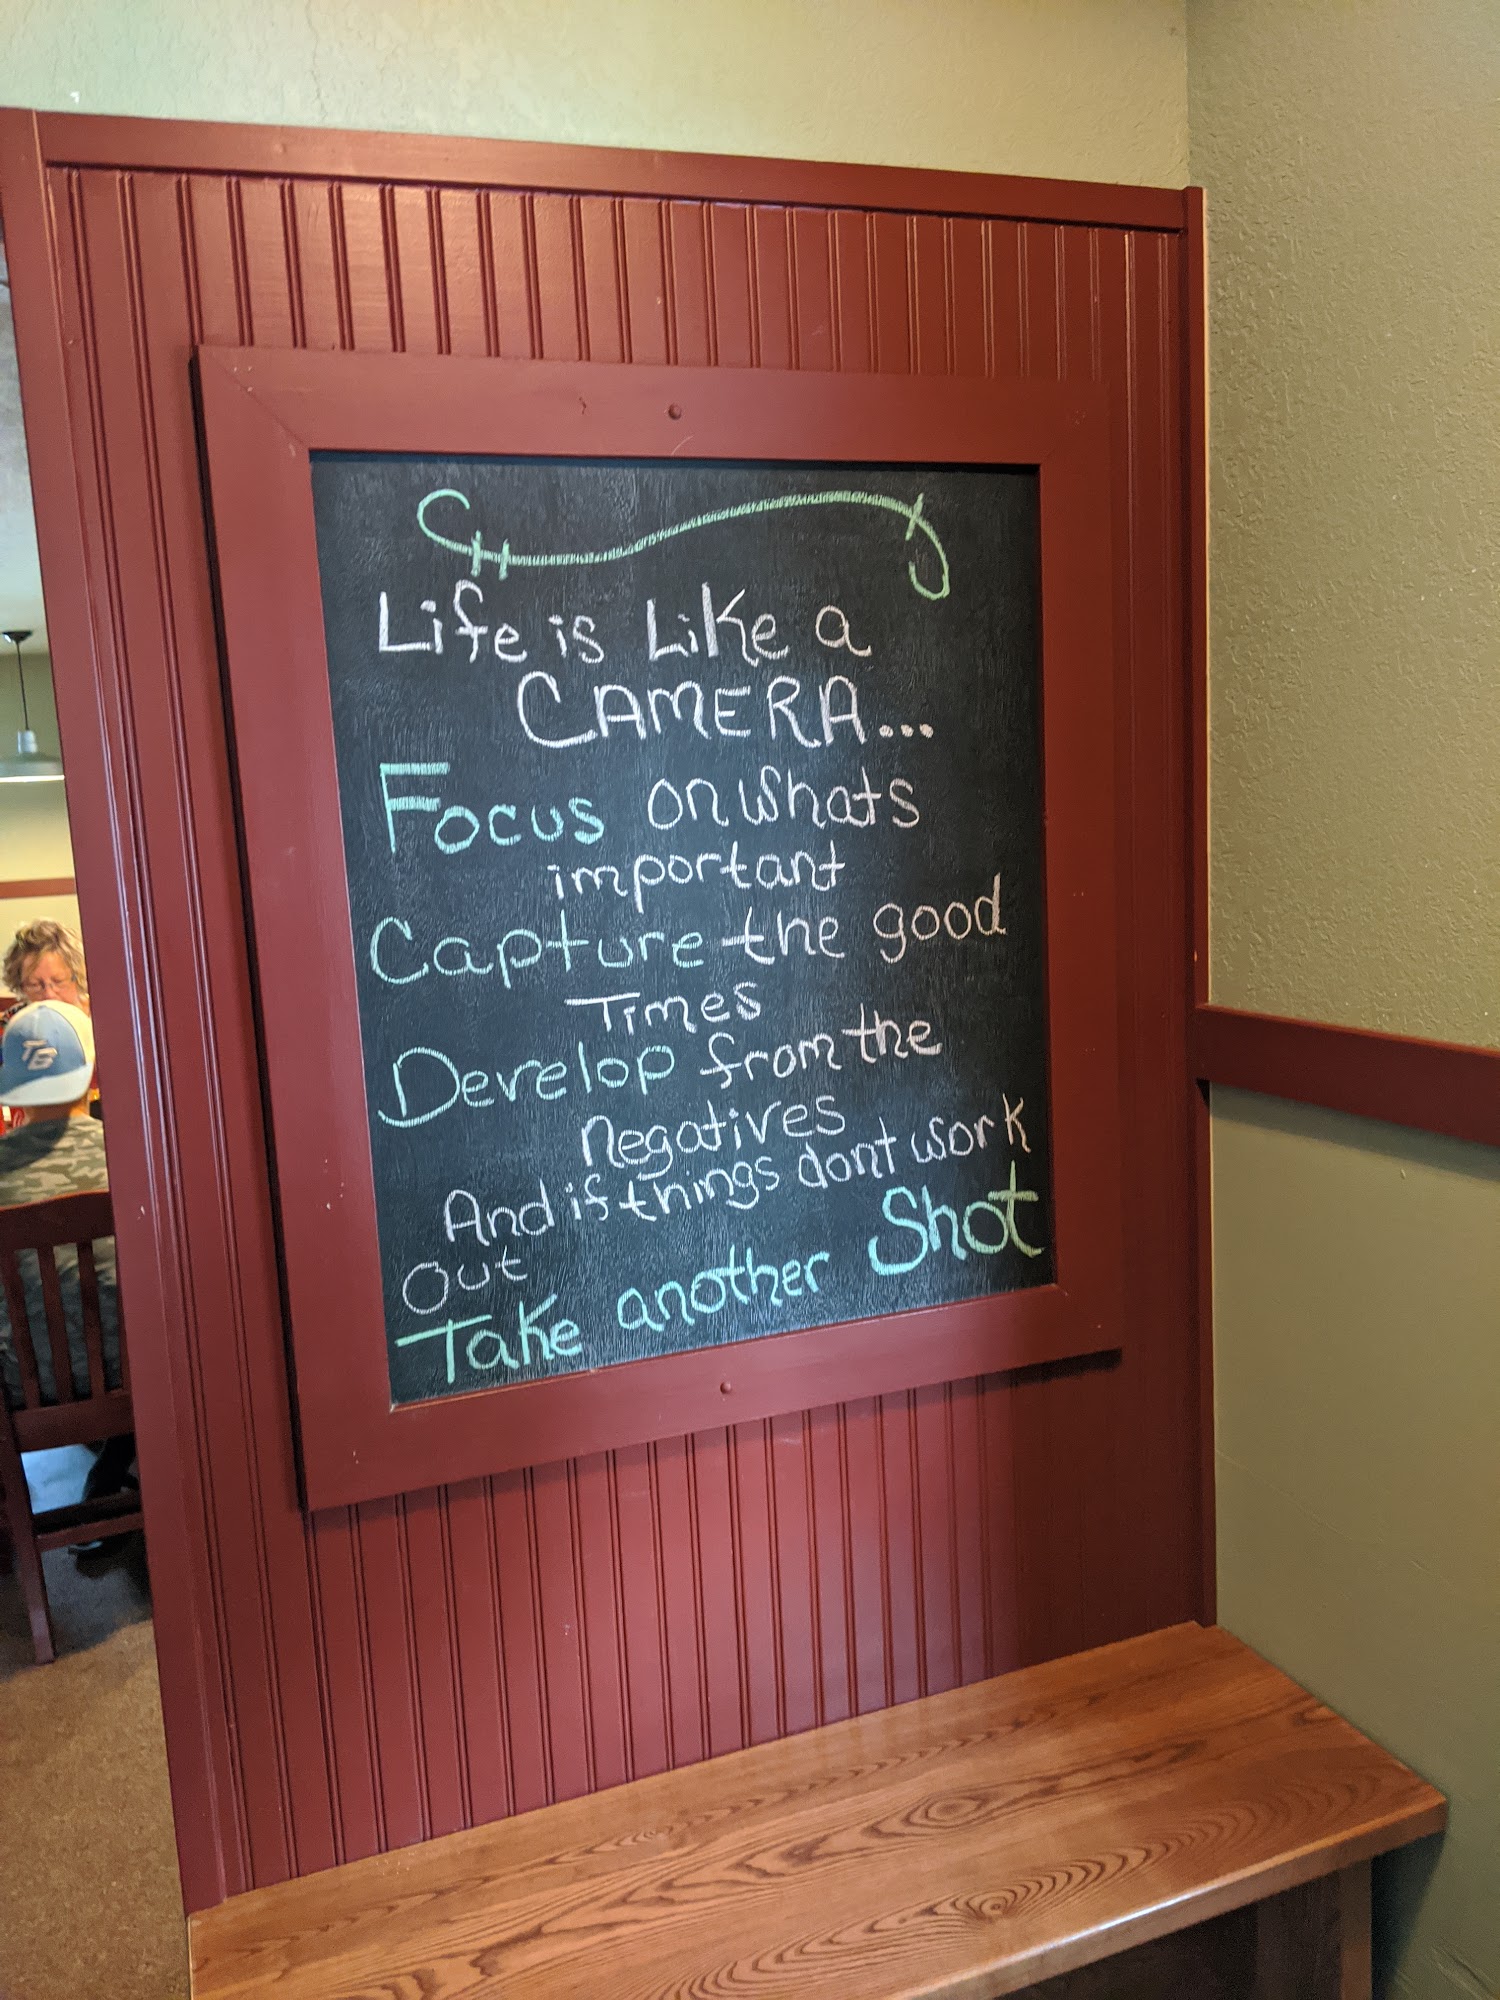 Life is Like a
CAMERA...
Focus on whats
important
Capture the good
Times
Develop from the
negatives
And if things dont work
Out
Take another Shot
TB